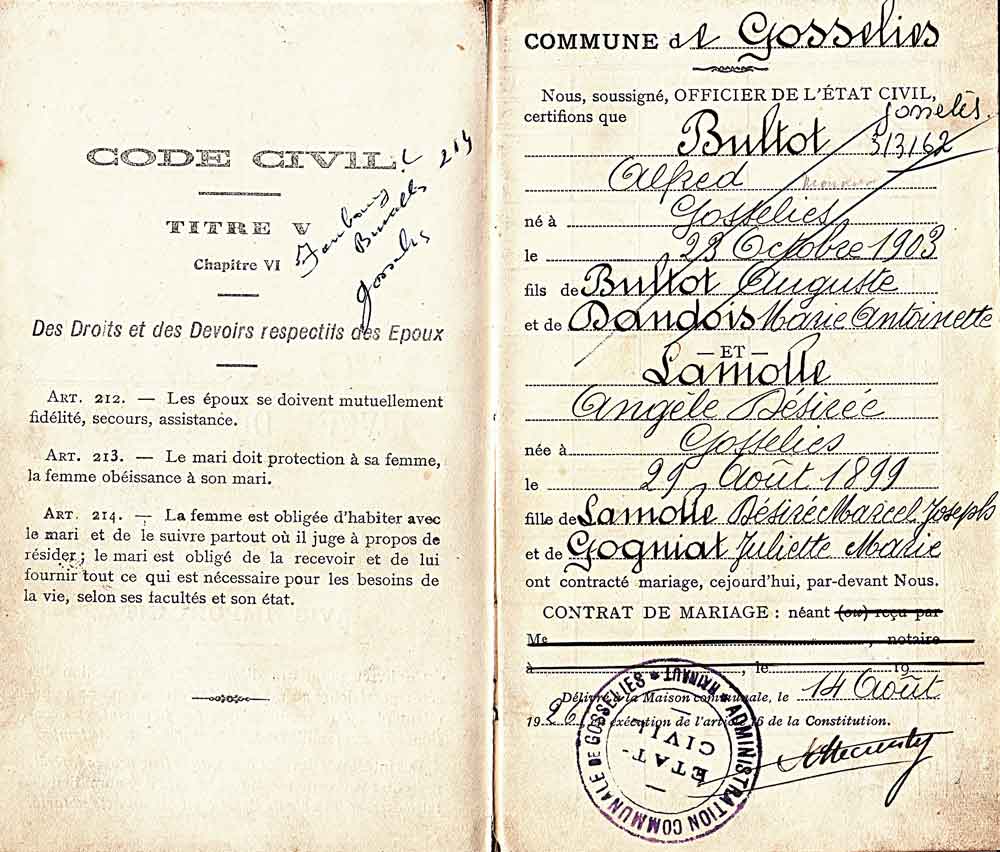 CODE CIVIL
TITRE V
Chapitre VI
Faubourg
Bruxelles 214
Gosselies
Des Droits et des Devoirs respectifs des Epoux
ART. 212. — Les époux se doivent mutuellement
fidélité, secours, assistance.
ART. 213. — Le mari doit protection à sa femme,
la femme obéissance à son mari.
ART. 214. — La femme est obligée d'habiter avec
le mari et de le suivre partout où il juge à propos de
résider ; le mari est obligé de la recevoir et de lui
fournir tout ce qui est nécessaire pour les besoins de
la vie, selon ses facultés et son état.
COMMUNE de Gosselies
Nous, soussigné, OFFICIER DE L'ÉTAT CIVIL,
certifions que
Gosselies
Bultot 3/3/62
Alfred
né à Gosselies
le 23 Octobre 1903
fils de Bultot Auguste
et de Dandois Marie Antoinette
— ET —
Lamolle
Angèle Désirée
née à Gosselies
le 29 Août 1899
fille de Lamolle Désiré Marcel Joseph
et de Gogniat Juliette Marie
ont contracté mariage, cejourd'hui, par-devant Nous.
CONTRAT DE MARIAGE : néant (ou) reçu par
Me , notaire
à , le 19
Délivré à la Maison communale, le 14 Août
19 en exécution de l'article 16 de la Constitution.
ADMINISTRATION COMMUNALE DE GOSSELIES * HAINAUT *
— ÉTAT-CIVIL —